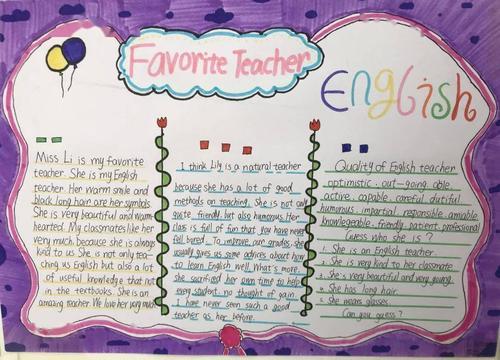 Favorite Teacher
English
Miss Li is my favorite
teacher. She is my English
teacher. Her warm smile and
black long hair are her symbols
She is very beautiful and warm-
hearted. My classmates like her
very much because she is always
kind to us. She is not only tea-
ching us English but also a lot
of useful knowledge that not
in the textbooks. She is an
amazing teacher. We love her very much
I think Lily is a natural teacher
because she has a lot of good
methods on teaching. She is not only
quite friendly but also humorous. Her
class is full of fun that you have never
fell bored. To improve our grades, she
usually gives us some advices about how
to learn English well. What's more,
she sacrificed her own time to help
every student no thought of gain.
I have never seen such a good
teacher as her before.
Quality of English teacher
optimistic out-going able
active capable careful dutiful
humorous impartial responsible amiable
knowledgeable friendly patient professional
Guess who she is ?
1. She is an English teacher.
2. She is very kind to her classmate.
3. She's very beautiful and very young.
4. She has long hair.
5. She wears glasses.
Can you guess ?